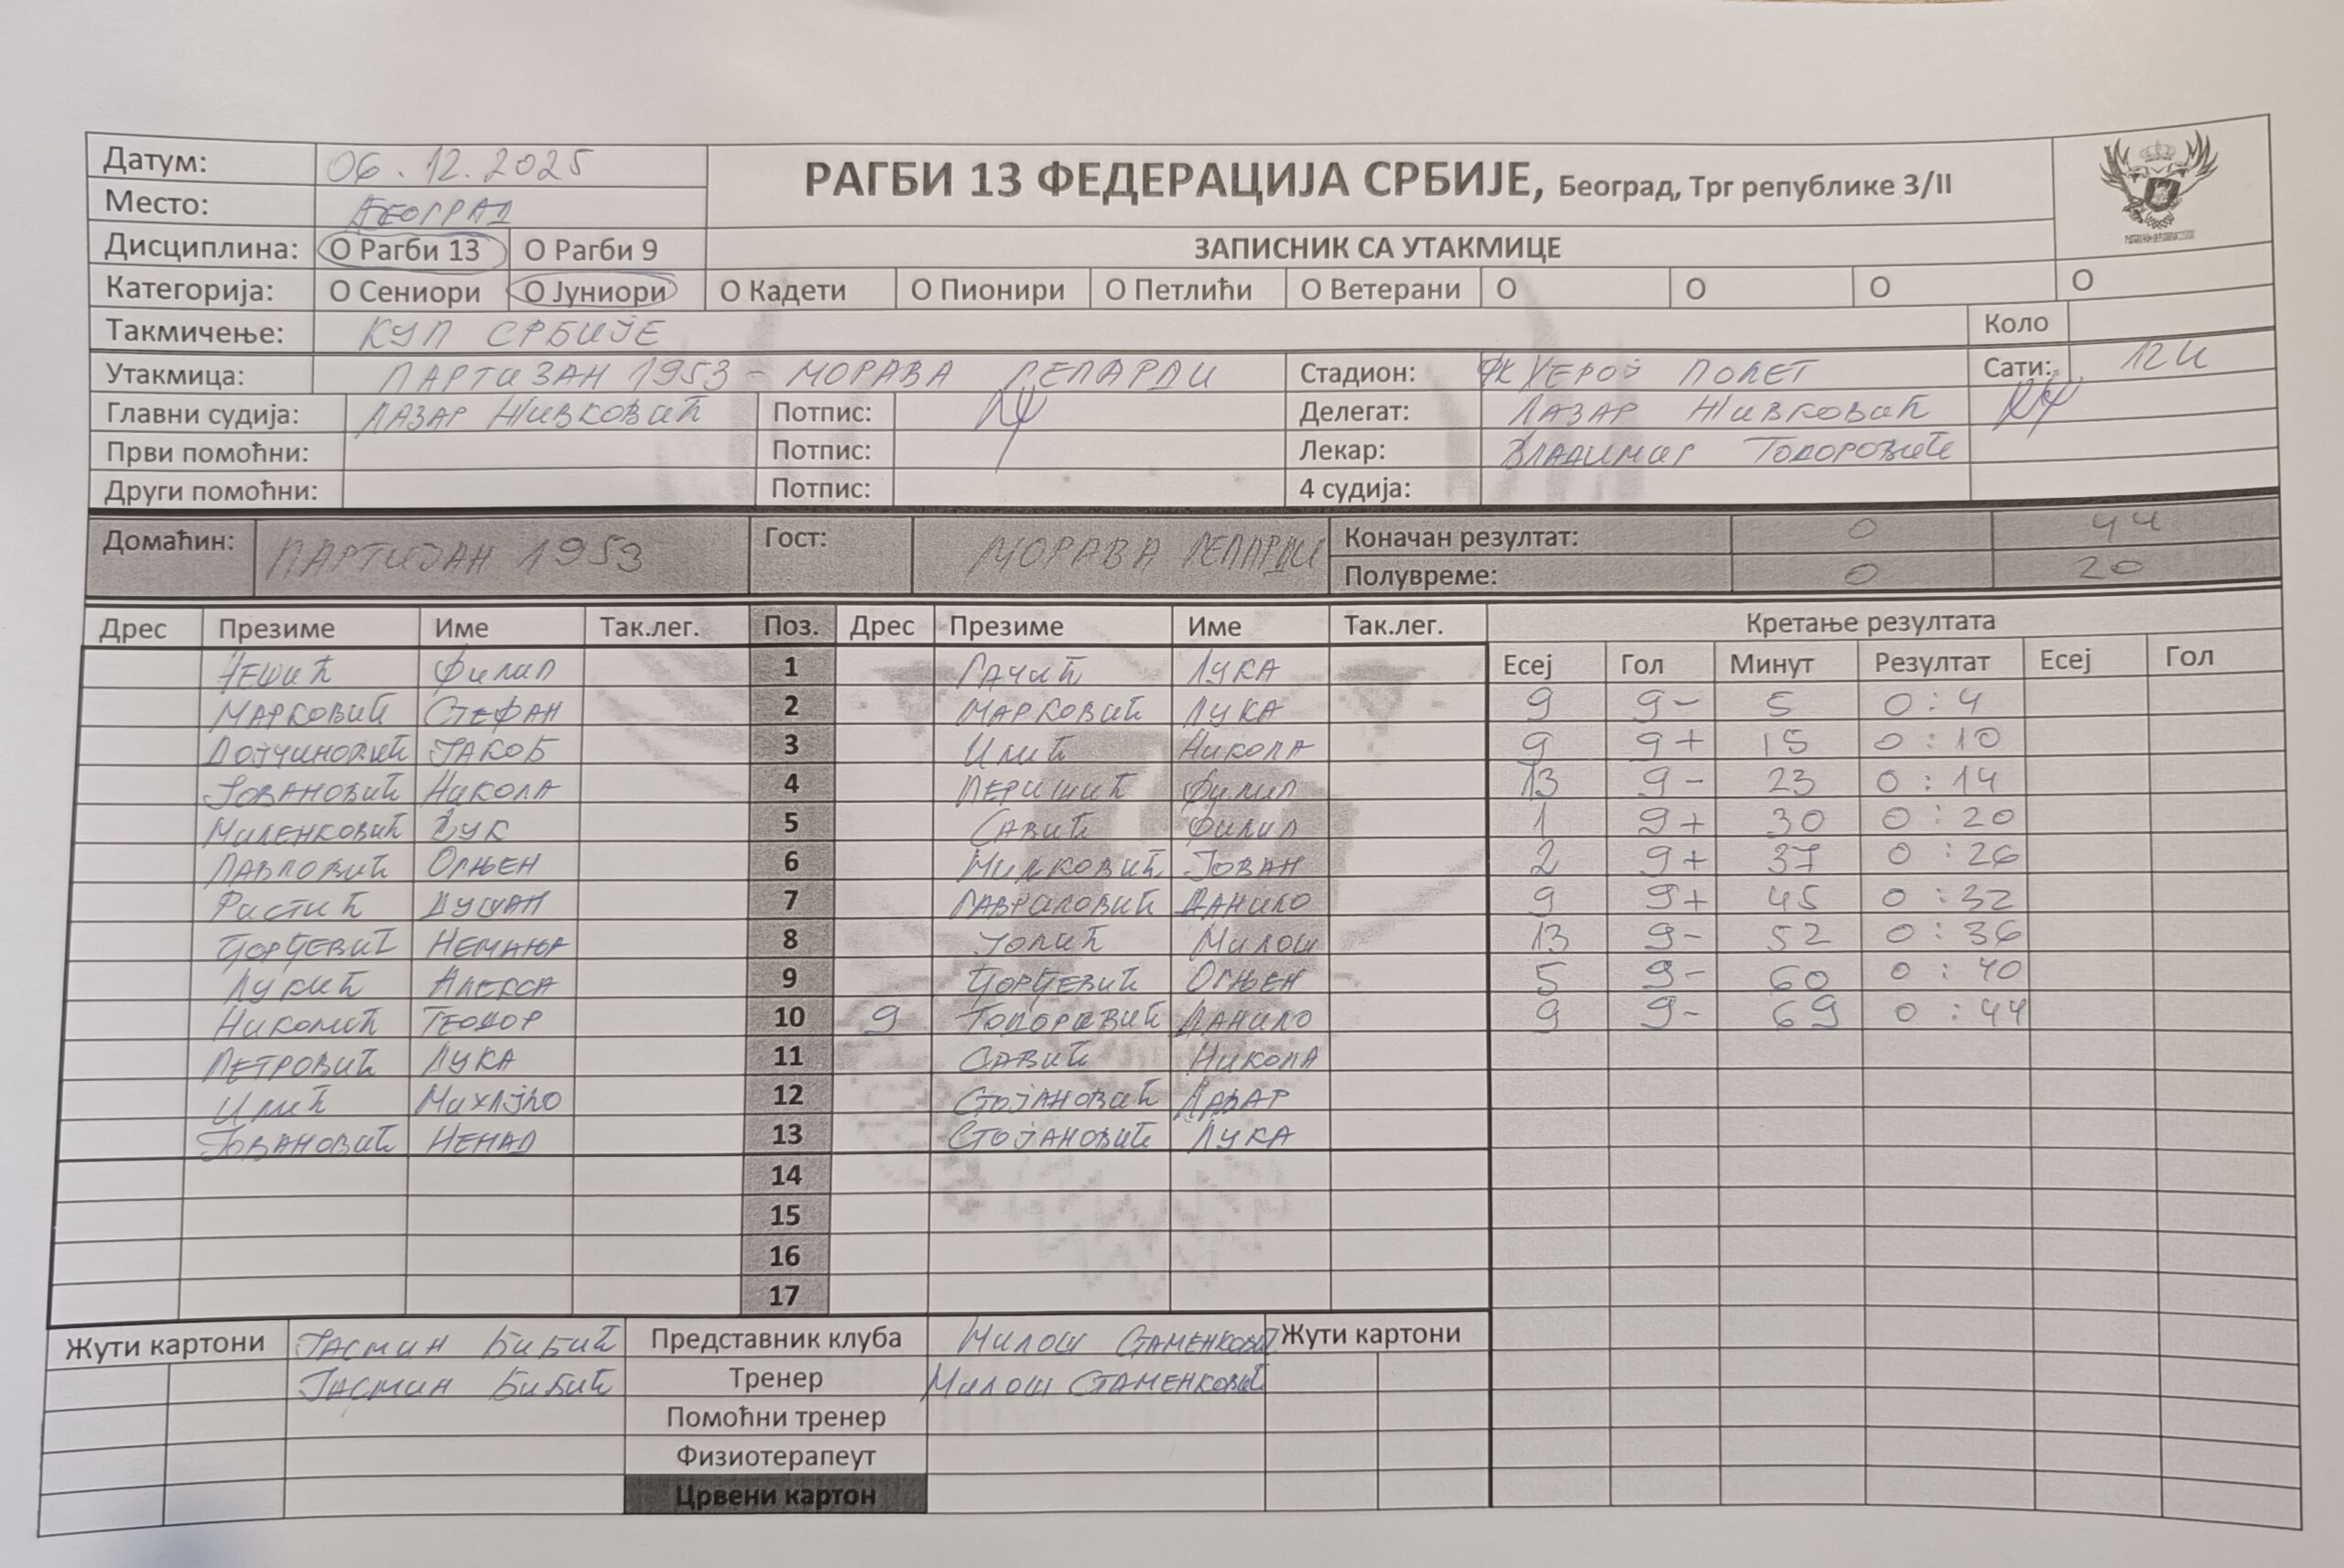 Датум: 06.12.2025 РАГБИ 13 ФЕДЕРАЦИЈА СРБИЈЕ, Београд, Трг републике 3/II
Место: БЕОГРАД
Дисциплина: О Рагби 13 О Рагби 9 ЗАПИСНИК СА УТАКМИЦЕ
Категорија: О Сениори О Јуниори О Кадети О Пионири О Петлићи О Ветерани О О О О
Такмичење: КУП СРБИЈЕ Коло
Утакмица: ПАРТИЗАН 1953 - МОРАВА ЛЕПАРДИ Стадион: ФК ХЕРОЈ ПОЛЕТ Сати: 12 И
Главни судија: ЛАЗАР ЖИВКОВИЋ Потпис: Делегат: ЛАЗАР ЖИВКОВИЋ
Први помоћни: Потпис: Лекар: ВЛАДИМИР ТОДОРОВИЋ
Други помоћни: Потпис: 4 судија:
Домаћин: ПАРТИЗАН 1953 Гост: МОРАВА ЛЕПАРДИ Коначан резултат: 0 44
Полувреме: 0 20
Дрес Презиме Име Так.лег. Поз. Дрес Презиме Име Так.лег. Кретање резултата
Есеј Гол Минут Резултат Есеј Гол
НЕШИЋ ФИЛИП 1 ГАЧИЋ ЛУКА
МАРКОВИЋ СТЕФАН 2 МАРКОВИЋ ЛУКА 9 9- 5 0:4
ДОЈЧИНОВИЋ ЈАКОБ 3 ИЛИЋ НИКОЛА 9 9+ 15 0:10
ЈОВАНОВИЋ НИКОЛА 4 ПЕРИШИЋ ФИЛИП 13 9- 23 0:14
МИЛЕНКОВИЋ ВУК 5 САВИЋ ФИЛИП 1 9+ 30 0:20
ПАВЛОВИЋ ОГЊЕН 6 МИЛКОВИЋ ЈОВАН 2 9+ 37 0:26
РИСТИЋ ДУШАН 7 ГАВРИЛОВИЋ ДАНИЛО 9 9+ 45 0:32
ЂОРЂЕВИЋ НЕМАЊА 8 ЈОЛИЋ МИЛОШ 13 9- 52 0:36
ЛУКИЋ АЛЕКСА 9 ЂОРЂЕВИЋ ОГЊЕН 5 9- 60 0:40
НИКОЛИЋ ТЕОДОР 10 9 ТОДОРОВИЋ ДАНИЛО 9 9- 69 0:44
ПЕТРОВИЋ ЛУКА 11 САВИЋ НИКОЛА
ИЛИЋ 12 СТОЈАНОВИЋ ЛАЗАР
ЈОВАНОВИЋ НЕНАД 13 СТОЈАНОВИЋ ЛУКА
14
15
16
17
Жути картони ЈАСМИН БИБИЋ Представник клуба МИЛОШ СТАМЕНКОВИЋ Жути картони
ЈАСМИН БИБИЋ Тренер МИЛОШ СТАМЕНКОВИЋ
Помоћни тренер
Физиотерапеут
Црвени картон